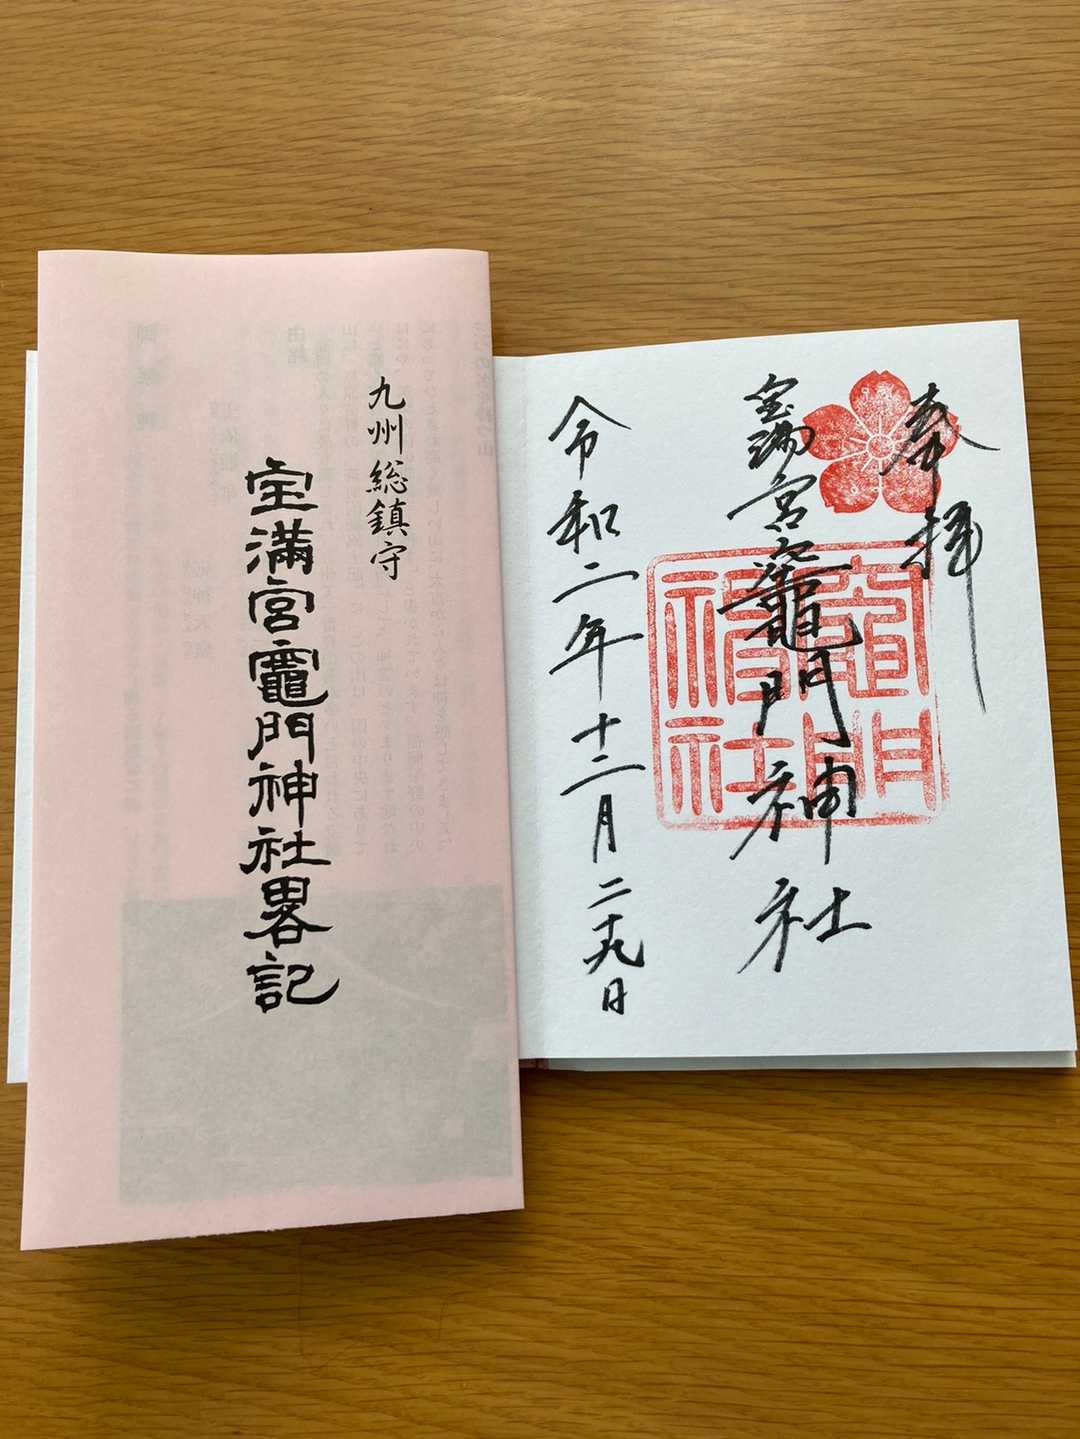 九州総鎮守
宝満宮竈門神社畧記
奉拝
宝満宮竈門神社
竈門
神社
令和二年十二月二十九日